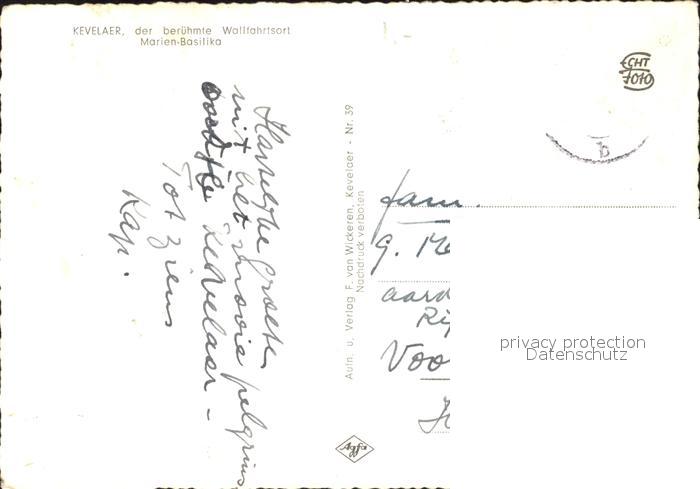 KEVELAER, der berühmte Wallfahrtsort
Marien-Basilika
Hartelijke Groeten
uit het mooie pelgrims
oordje Kevelaer -
Tot ziens
Kap.
Aufn. u. Verlag F. van Wickeren, Kevelaer - Nr. 39
Nachdruck verboten
ECHT
FOTO
b
fam.
G. Me
aard
Rij
Voo
privacy protection
Datenschutz
Agfa